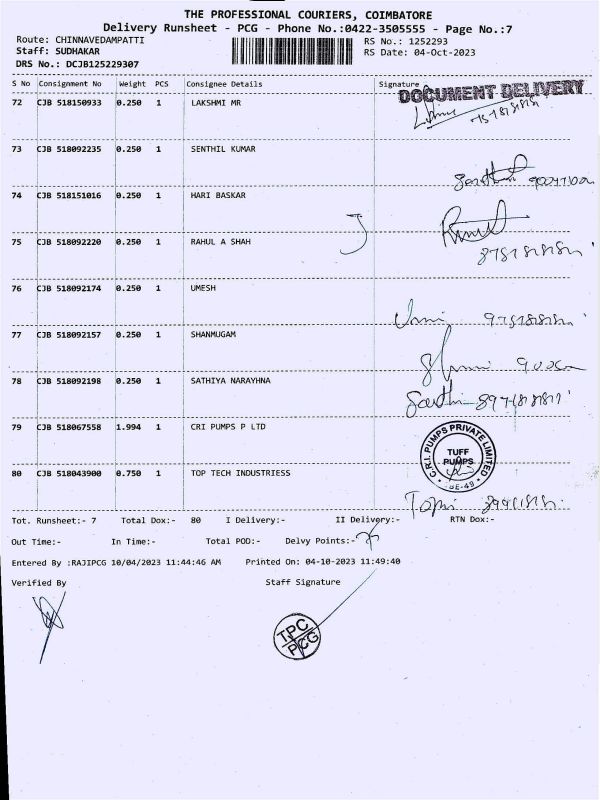 THE PROFESSIONAL COURIERS, COIMBATORE
Delivery Runsheet - PCG - Phone No.:0422-3505555 - Page No.:7
Route: CHINNAVEDAMPATTI RS No.: 1252293
Staff: SUDHAKAR RS Date: 04-Oct-2023
DRS No.: DCJB125229307
S No Consignment No Weight PCS Consignee Details Signature
DOCUMENT DELIVERY
72 CJB 518150933 0.250 1 LAKSHMI MR
73 CJB 518092235 0.250 1 SENTHIL KUMAR
74 CJB 518151016 0.250 1 HARI BASKAR
75 CJB 518092220 0.250 1 RAHUL A SHAH
76 CJB 518092174 0.250 1 UMESH
77 CJB 518092157 0.250 1 SHANMUGAM
78 CJB 518092198 0.250 1 SATHIYA NARAYHNA
79 CJB 518067558 1.994 1 CRI PUMPS P LTD
C.R.I. PUMPS PRIVATE LIMITED
TUFF
PUMPS
80 CJB 518043900 0.750 1 TOP TECH INDUSTRIESS
Tot. Runsheet:- 7 Total Dox:- 80 I Delivery:- II Delivery:- RTN Dox:-
Out Time:- In Time:- Total POD:- Delvy Points:-
Entered By :RAJIPCG 10/04/2023 11:44:46 AM Printed On: 04-10-2023 11:49:40
Verified By Staff Signature
TPC
PCG